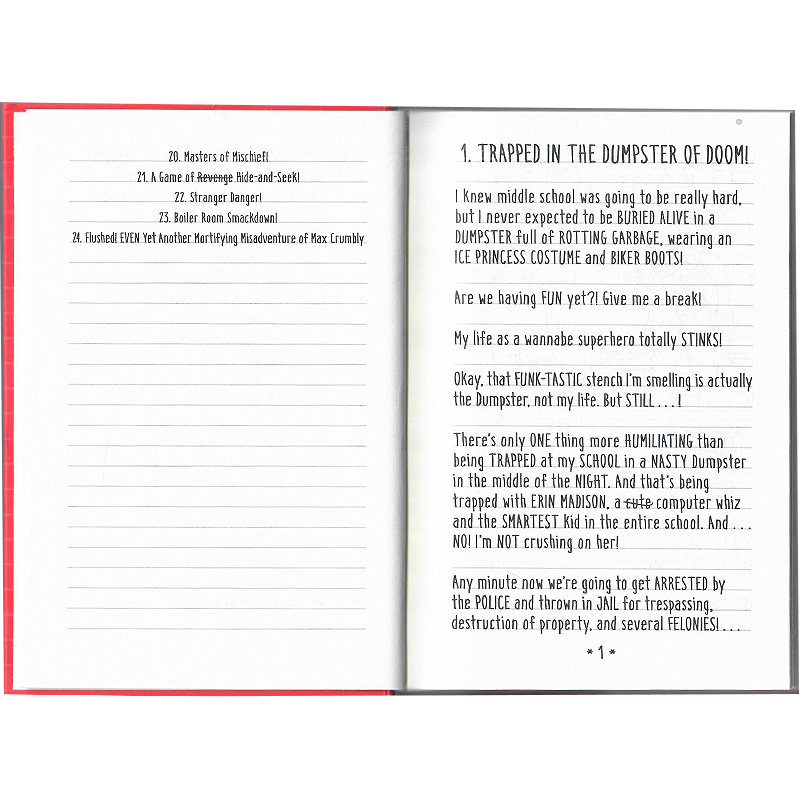 20. Masters of Mischief!
21. A Game of Revenge Hide-and-Seek!
22. Stranger Danger!
23. Boiler Room Smackdown!
24. Flushed! EVEN Yet Another Mortifying Misadventure of Max Crumbly
1. TRAPPED IN THE DUMPSTER OF DOOM!
I knew middle school was going to be really hard,
but I never expected to be BURIED ALIVE in a
DUMPSTER full of ROTTING GARBAGE, wearing an
ICE PRINCESS COSTUME and BIKER BOOTS!
Are we having FUN yet?! Give me a break!
My life as a wannabe superhero totally STINKS!
Okay, that FUNK-TASTIC stench I'm smelling is actually
the Dumpster, not my life. But STILL . . . !
There's only ONE thing more HUMILIATING than
being TRAPPED at my SCHOOL in a NASTY Dumpster
in the middle of the NIGHT. And that's being
trapped with ERIN MADISON, a cute computer whiz
and the SMARTEST kid in the entire school. And . . .
NO! I'm NOT crushing on her!
Any minute now we're going to get ARRESTED by
the POLICE and thrown in JAIL for trespassing,
destruction of property, and several FELONIES! . . .
* 1 *